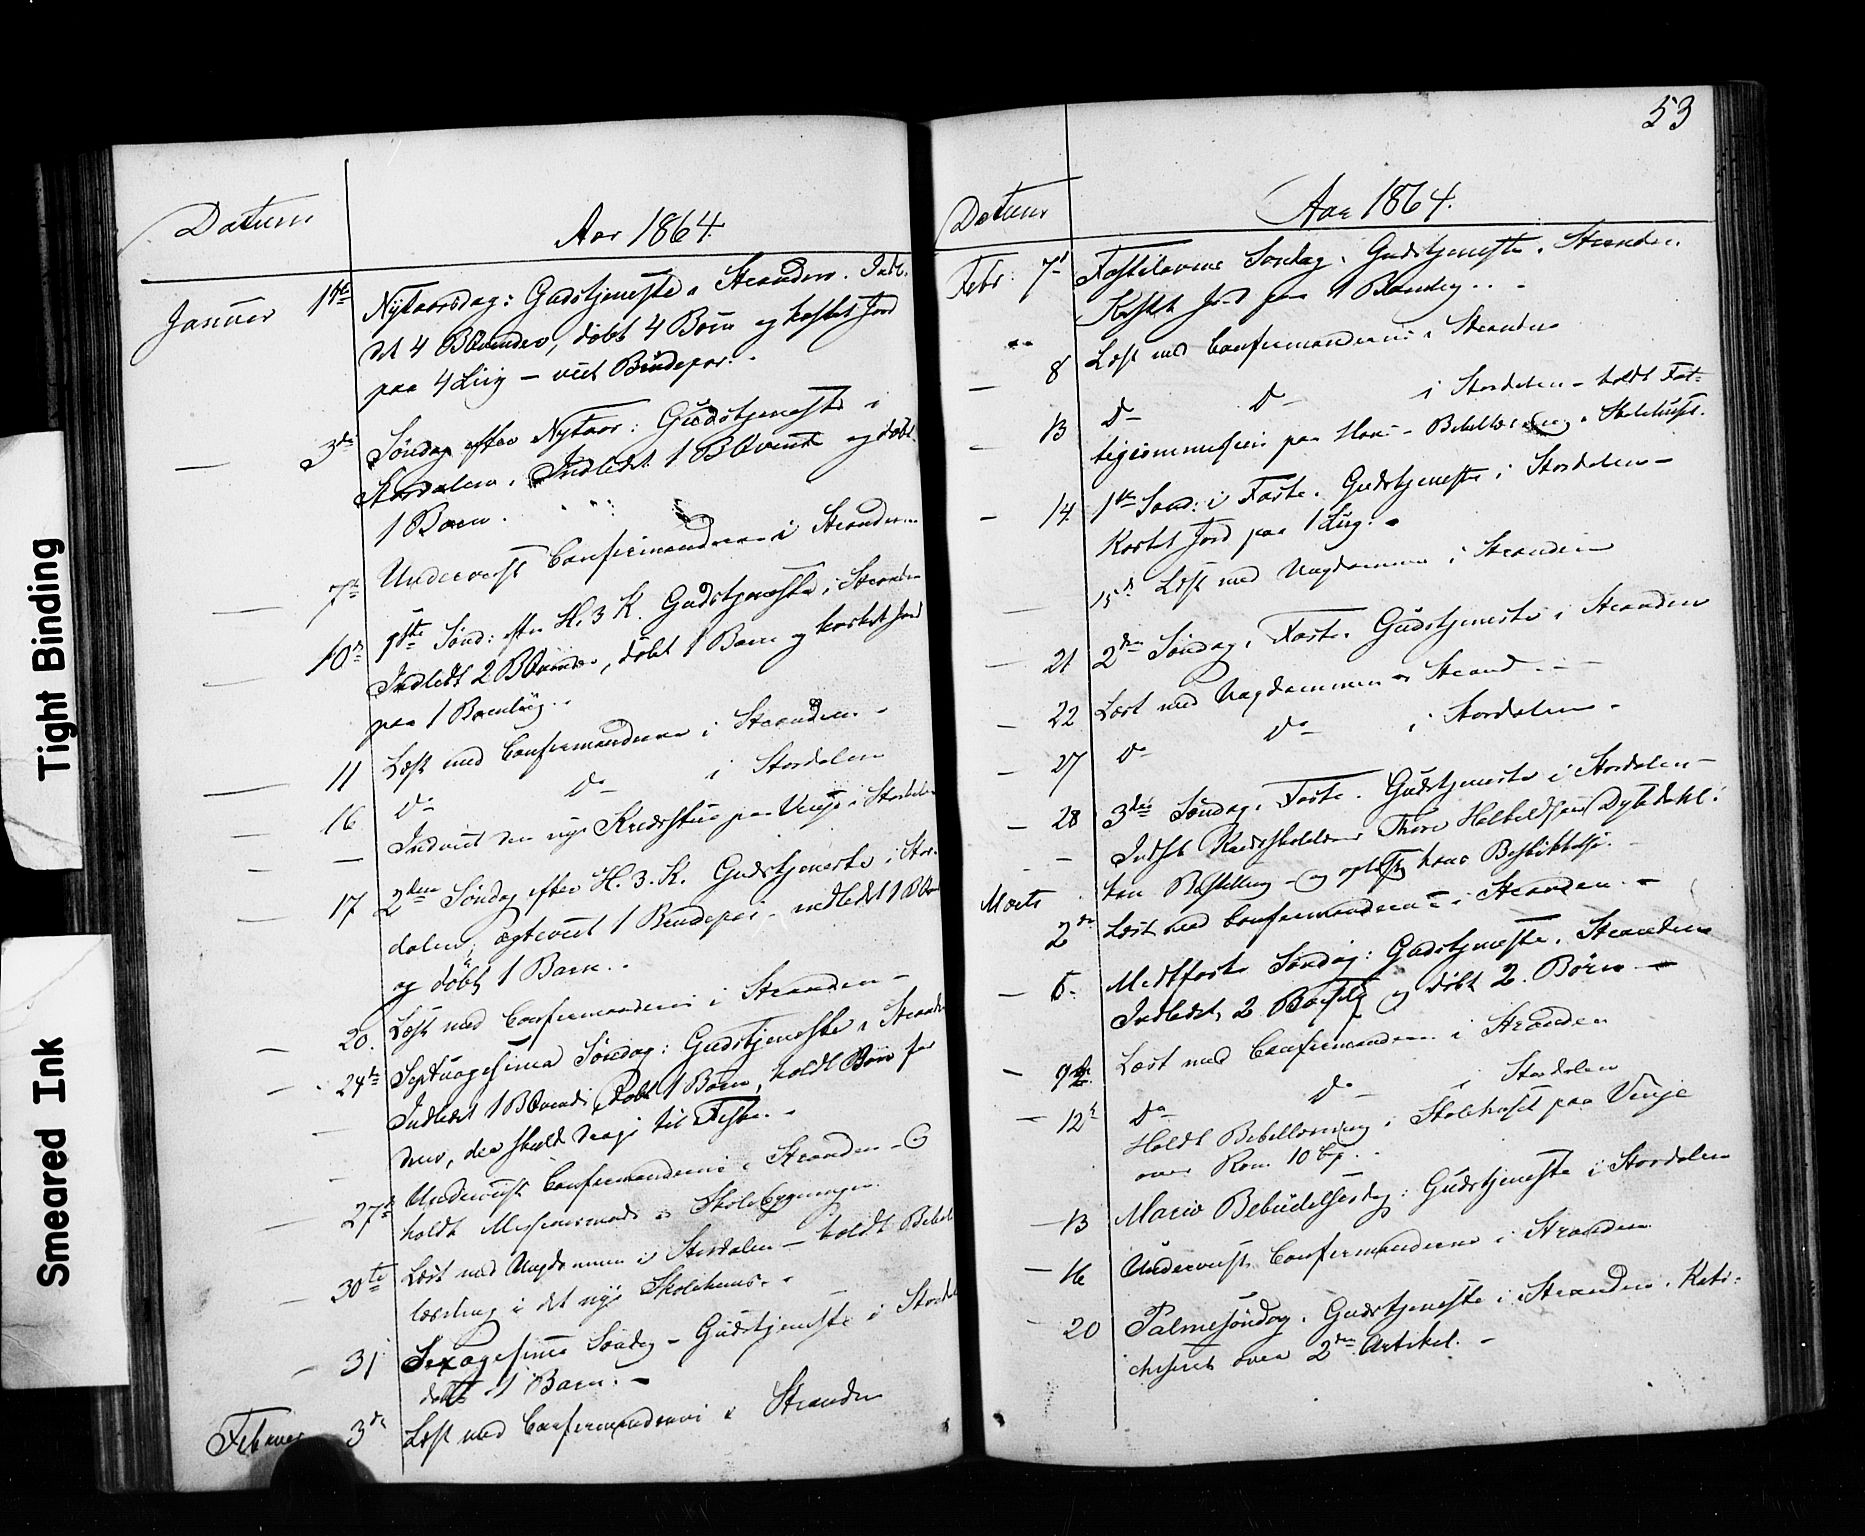 Tight Binding
Smeared Ink
Datum
Aar 1864.
Januar 1ste Nytaarsdag: Gudstjeneste i Stranden. Indle-
det 4 BQvinder, døbt 4 Børn og kastet Jord
paa 4 Liig — viet Brudepar.
— 3de Søndag efter Nytaar: Gudstjeneste i
Stordalen. Indledet 1 BQvinde og døbt
1 Barn.
— 7de Underviist Confirmanderne i Stranden
— 10de 1ste Sønd: efter H. 3 K. Gudstjeneste i Stranden
Indledt 2 BQvinder, døbt 1 Barn og kastet Jord
paa 1 Barnliig.
— 11 Læst med Confirmanderne i Stranden —
— 16 Do Do i Stordalen
— Indviet den nye Kredsstue paa Vinje i Stordalen
— 17 2den Søndag efter H. 3. K. Gudstjeneste i Stor-
dalen, ægteviet 1 Brudepar — indledet 1 BQvin
og døbt 1 Barn.
— 20. Læst med Confirmanderne i Stranden —
— 24de Septuagesima Søndag: Gudstjeneste i Stranden
Indledet 1 BQvinde døbt 1 Barn, holdt Bøn for
dem, der skuld drage til Fiske. —
— 27de Underviist Confirmanderne i Stranden —
holdt Missionsmøde i Skolebygningen.
— 30te Læst med Ungdommen i Stordalen — holdt Bibel
læsning i det nye Skolehuus. —
— 31 Sexagesima Søndag — Gudstjeneste i Stordal
døbt 1 Barn. —
Februar 3de Læst med Confirmanderne i Stranden
53
Datum
Aar 1864.
Febr. 7de Fastelavns Søndag. Gudstjeneste i Stranden
Kastet Jord paa 1
— 8 Læst med Confirmanderne i Stranden
— 13 Do Do i Stordalen — holdt Fat-
tigcommission paa Hove — Bibellæsning i Skolehuset.
— 14 1ste Sønd: i Faste. Gudstjeneste i Stordalen —
Kastet Jord paa 1 Liig. —
— 15de Læst med Ungdommen i Stranden
— 21 2den Søndag i Faste. Gudstjeneste i Stranden
— 22 Læst med Ungdommen i Strand — —
— 27 Do Do i Stordalen —
— 28 3die Søndag i Faste. Gudstjeneste i Stordalen —
— Indsat Kredsskolelærer Thore Dyrdahl i
han Bestilling — og oplæst hans Beskikkelse. —
Marts 2de Læst med Confirmanderne i Stranden. —
— 6. Midtfaste Søndag: Gudstjeneste i Stranden
Indledet 2 og døbt 2 Børn —
— 9de Læst med Confirmanderne i Stranden
— 12te Do Do i Stordalen
Holdt Bibellæsning i Skolehuset paa Vinje
over Rom. 10 Cp. —
— 13 Mariæ Bebudelsesdag: Gudstjeneste i Stordalen
— 16 Underviist Confirmanderne i Stranden
— 20 Palmesøndag. Gudstjeneste i Stranden. Kate-
chiseret over 2den Artikel. —